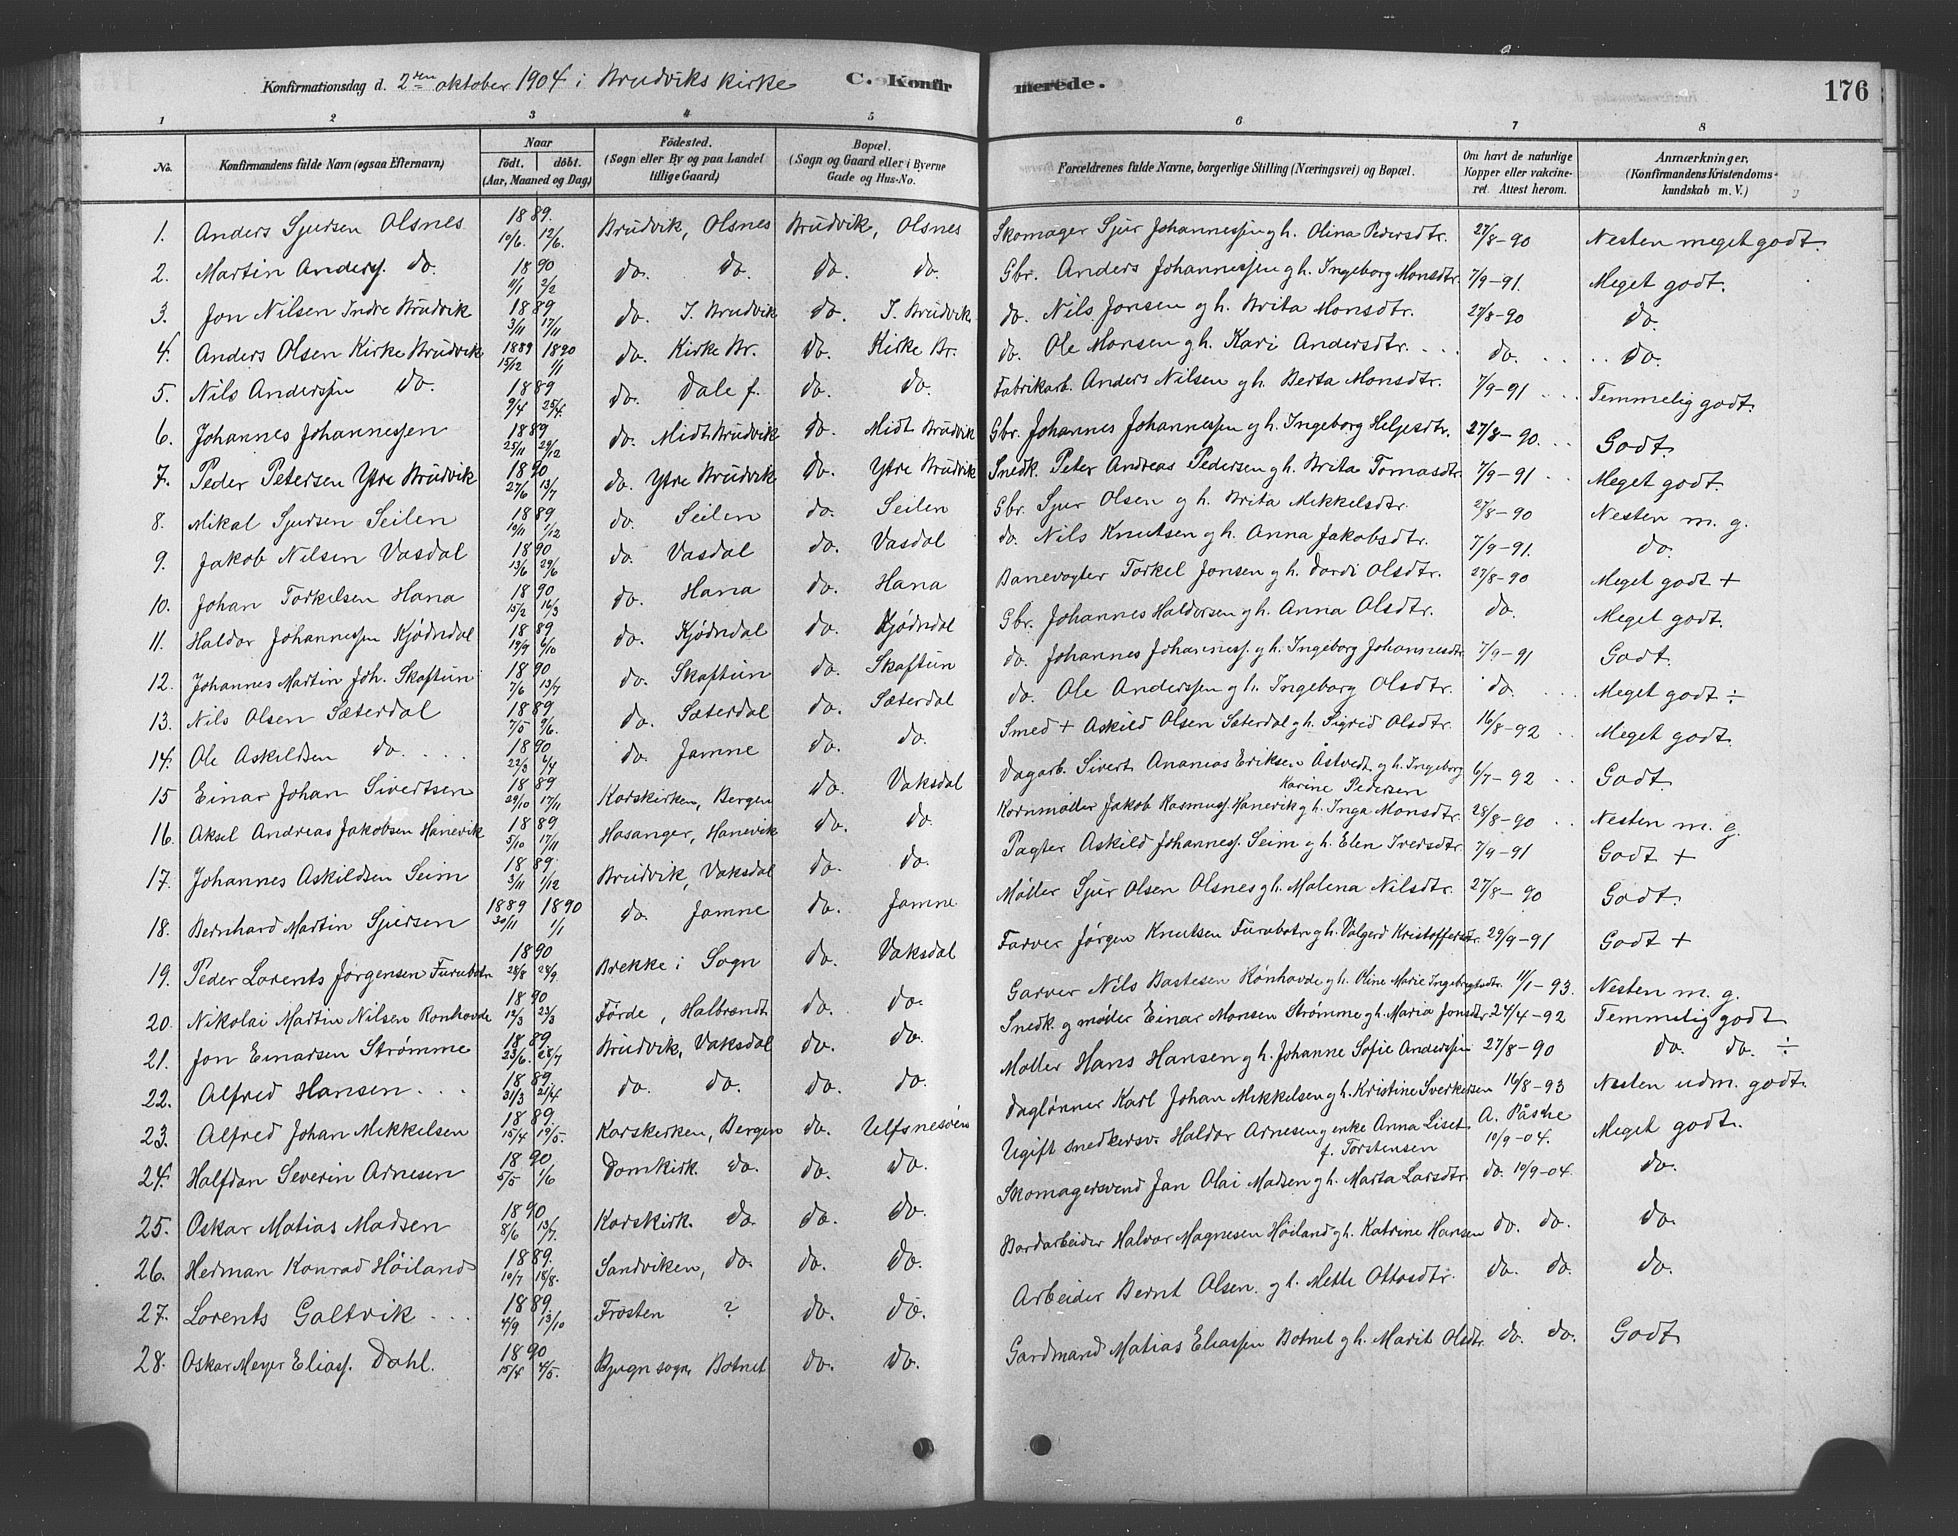 Konfirmationsdag d. 2den oktober 1904 i Brudviks kirke C. Konfirmerede. 176
1 2 3 4 5 6 7 8
No. Konfirmandens fulde Navn (ogsaa Efternavn) Naar født. døbt. (Aar, Maaned og Dag) Födested. (Sogn eller By og paa Landet tillige Gaard) Bopæl. (Sogn og Gaard eller i Byerne Gade og Hus-No. Forældrenes fulde Navne, borgerlige Stilling (Næringsvei) og Bopæl. Om havt de naturlige Kopper eller vakcineret. Attest herom. Anmærkninger, (Konfirmandens Kristendomskundskab m. V.)
1. Anders Sjursen Olsnes 1889. 10/6. 12/6. Brudvik, Olsnes Brudvik, Olsnes Skomager Sjur Johannessen g h. Olina Pedersdtr. 27/8-90 Nesten meget godt.
2. Martin Anders. do. 1890 11/1 2/2 do. do. do. do. Gbr. Anders Johannessen g h. Ingeborg Monsdtr. 7/9-91. Meget godt.
3. Jon Nilsen Indre Brudvik 1889 3/11 17/11 do. I. Brudvik do. I. Brudvik do. Nils Jonsen g h. Brita Monsdtr. 27/8-90 do.
4. Anders Olsen Kirke Brudvik 1889 1890 15/12 1/1 do. Kirke Br. do. Kirke Br. do. Ole Monsen g h. Kari Andersdtr. ... do. .... do.
5. Nils Anderssen do. 1889 9/4 25/4. do. Dale f. do. do. Fabrikarb. Anders Nilsen g h. Berta Monsdtr. 7/9-91 ... Temmelig godt.
6. Johannes Johannessen 1889 25/11 29/12 do. Midt Brudvik do. Midt Brudvik Gbr. Johannes Johannessen g h. Ingeborg Helgesdtr. 27/8-90. .. Godt.
7. Peder Petersen Ytre Brudvik 1890 27/6 13/7 do. Ytre Brudvik do. Ytre Brudvik Snedk. Peter Andreas Pedersen g h. Brita Tomasdtr. 7/9-91 .. Meget godt.
8. Mikal Sjursen Seilen 1889 10/11 1/12 do. Seilen do. Seilen Gbr. Sjur Olsen g h. Brita Mikkelsdtr. 27/8-90 Nesten m. g.
9. Jakob Nilsen Vasdal 1890 13/6 29/6 do. Vasdal do. Vasdal do. Nils Knutsen g h. Anna Jakobsdtr. 7/9-91. do.
10. Johan Torkelsen Hana 1890 15/2 16/3 do. Hana do. Hana Banevogter Torkel Jonsen g h. Dordi Olsdtr. 27/8-90 Meget godt +
11. Haldor Johannessen Kjödndal 1889 19/9 6/10 do. Kjödndal do. Kjödndal Gbr. Johannes Haldorsen g h. Anna Olsdtr. do. Meget godt.
12. Johannes Martin Joh. Skaftun 1890 7/6 13/7 do. Skaftun do. Skaftun do. Johannes Johanness. g h. Ingeborg Johannesdtr. 7/9-91 Godt.
13. Nils Olsen Sæterdal 1889 7/5 9/6. do. Sæterdal do. Sæterdal do. Ole Anderssen g h. Ingeborg Olsdtr. do. ... Meget godt ÷
14. Ole Askildsen do. .... 1890 22/3 4/4 do. Jamne do. do. Smed + Askild Olsen Sæterdal g h. Sigrid Olsdtr. 16/8-92 .. Meget godt.
15 Einar Johan Sivertsen 1889 29/10 17/11 Korskirken, Bergen do. Vaksdal Dagarb. Sivert Ananias Eriksen Åstvedt g h. Ingeborg Karine Pedersen 6/7-92 .. Godt.
16. Aksel Andreas Jakobsen Hanevik 1889 5/10 17/11 Hosanger, Hanevik do. do. Kornmøller Jakob Rasmuss. Hanevik g h. Inga Monsdtr. 28/8-90 .. Nesten m. g.
17. Johannes Askildsen Seim 1889. 3/11 1/12 Brudvik, Vaksdal do. do. Pagter Askild Johanness. Seim g h. Elen Iversdtr. 7/9-91 Godt +
18. Bernhard Martin Sjursen 1889 1890 30/11 1/1 do. Jamne do. Jamne Møller Sjur Olsen Olsnes g h. Malena Nilsdtr. 27/8-90 Godt.
19. Peder Lorents Jørgensen Furubotn 1890 28/8 28/9. Brekke i Sogn do. Vaksdal Farver Jørgen Knutsen Furubotn g h. Valgerd Kristoffersdtr. 29/9-91 Godt +
20. Nikolai Martin Nilsen Rønhovde 1890 12/3 23/3 Førde, Halbrendt. do. do. Garver Nils Bastesen Rønhovde g h. Oline Marie Ingebrigtsdtr. 11/1-93. Nesten m. g.
21. Jon Einarsen Strømme 1889. 23/6. 28/7 Brudvik, Vaksdal do. do. Snedk. g møller Einar Monsen Strømme g h. Maria Jonsdtr. 24/4-92 Temmelig godt
22. Alfred Hansen ... 1889. 31/3 21/4 do. do. do. do. Møller Hans Hansen g h. Johanne Sofie Anderssen 27/8-90 do. do. ÷
23. Alfred Johan Mikkelsen 1889. 15/4 19/5. Korskirken, Bergen do. Ulfsnesøen Dagløнner Karl Johan Mikkelsen g h. Kristine Sverkersen 16/8-93 Nesten udm. godt.
24. Halfdan Severin Arnesen 1890 5/5 1/6 Domkirk. do. do. do. Ugift snedkersv. Haldor Arnesen g enke Anna Liset f. Torstensen A. Påsche 10/9-04. Meget godt.
25. Oskar Matias Madsen 1890 8/6 13/7. Korskirk. do. do. do. Skomagersvend Jan Olai Madsen g h. Marta Larsdtr. do. 10/9-04. do.
26. Herman Konrad Høiland 1889. 10/7 18/8. Sandviken, do. do. do. Bordarbeider Halvor Magnesen Høiland g h. Katrine Hansen do. do. do.
27. Lorents Galtvik ... 1889. 4/9 13/10 Frosten ? do. do. Arbeider Bernt Olsen. g h. Mette Ottosdtr. do. do. do.
28. Oskar Meyer Eliass. Dahl. 1890 15/4 4/5. Bjugn sogn, Botnet do. do. Gardmand Matias Eliassen Botnet g h. Marit Olsdtr. do. do. Godt